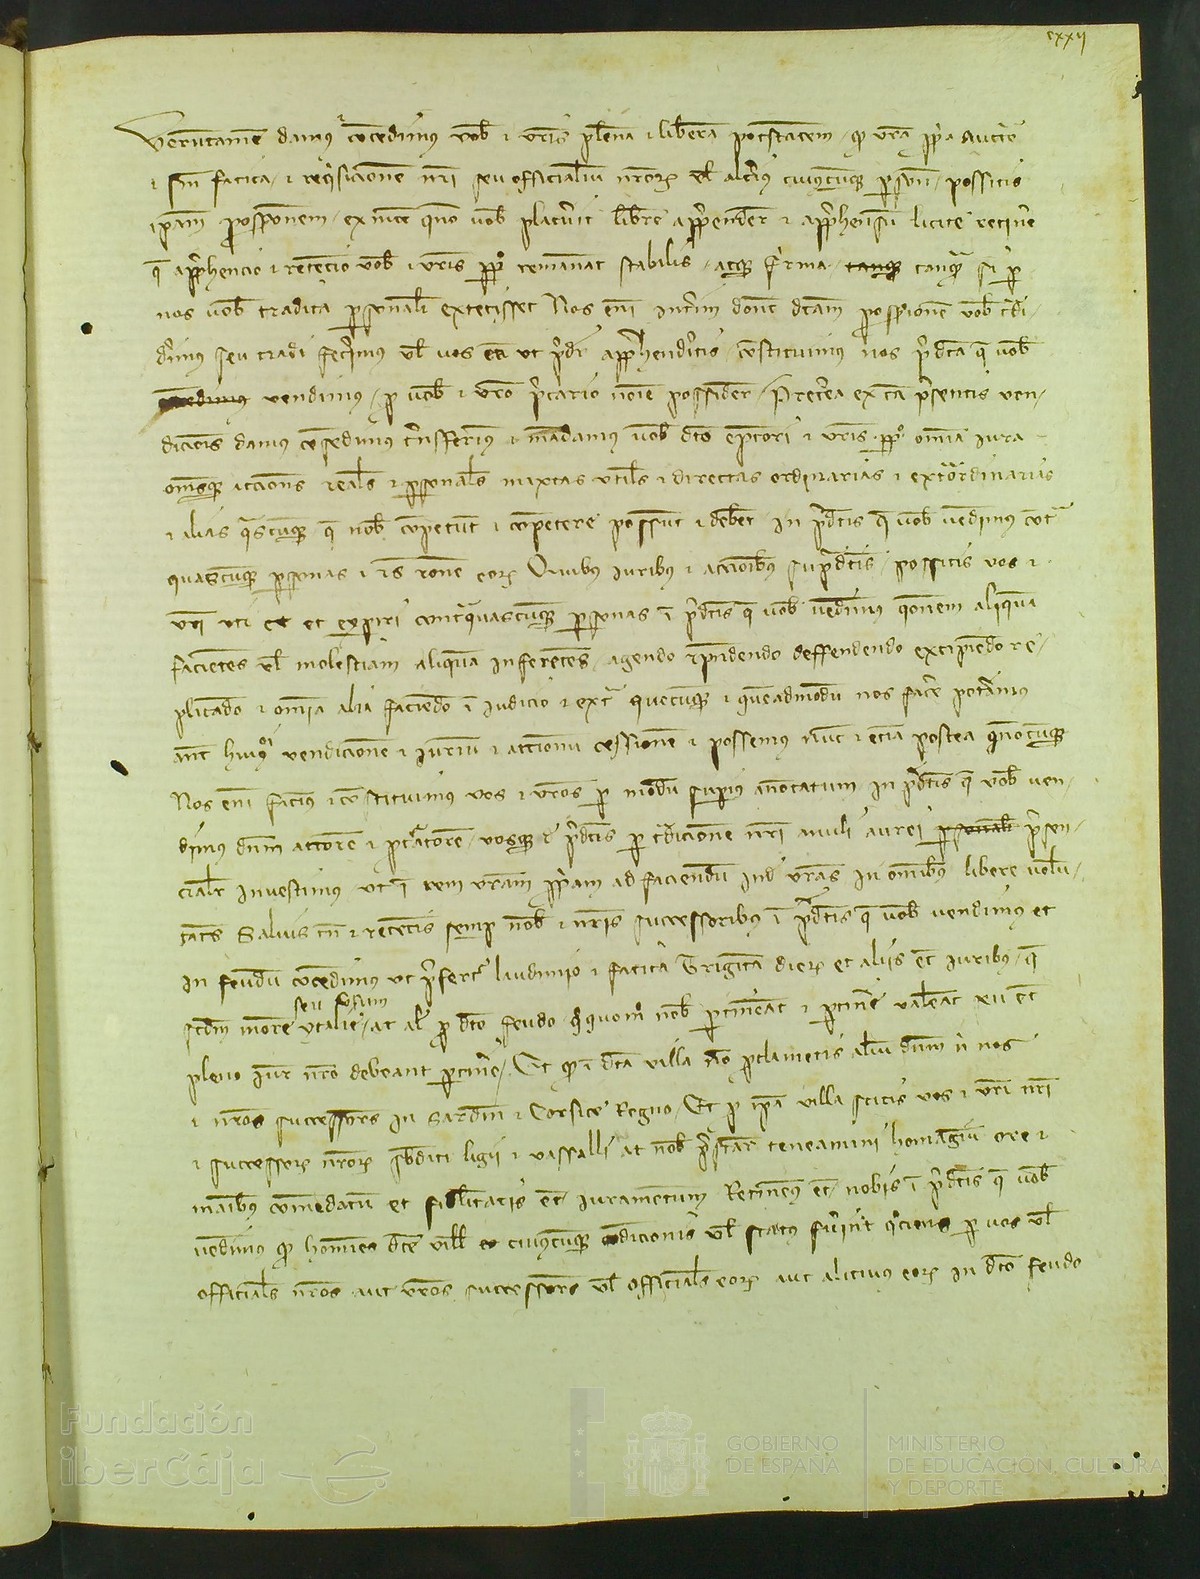 cxxij
Verutame damus concedimus vob et vris plena et libera potestatem quod vra ppa auctte
et sin fatica et requisicione nri seu officialium nrorum vel alterius cuiuscumque person possitis
ipam possessionem ex nunc quando vob placuerit libere apprehendere et apprehensam licite retinere
que apprehencio et retencio vob et vris perpo remaneat stabilis atque firma tanquam si per
nos vob tradita personaliter extetisset Nos eni interim donec dictam possessionem vob tradi
derimus seu tradi fecerimus vel vos ea ut predr apprehenderitis constituimus nos predicta que vob
vendimus pro vob et vro precario noie possidere Preterea ex ca presentis ven
dicionis damus concedimus transferimus et mandamus vob dicto emptori et vris perpo omia iura
omesque acciones reales et personales mixtas utiles et directas ordinarias et extraordinarias
et alias quascumque que nob competunt et competere possunt et debent in predictis que vob vendimus contra
quascumque personas et res rone eorum Quibus iuribus et accionibus supradictis possitis vos et
vri uti et experiri contra quascumque personas in predictis que vob vendimus questionem aliquam
facientes vel molestiam aliquam inferentes agendo respondendo deffendendo excipiendo re
plicando et omnia alia faciendo in iudicio et extra quecumque et quemadmodum nos facere poteramus
ante huiusmodi vendicionem et iurium et accionum cessionem et possemus nunc et etiam postea quandocumque
Nos eni facimus et constituimus vos et vros per modum superius annotatum in predictis que vob ven
dimus dominum actorem et procuratorem vosque de predictis per tradicionem nri anuli aurei presen
cialiter investimus ut in rem vram ppam ad faciendum inde vras in omnibus libere volun
tates Salvis tn et retentis semper nob et nris successoribus in predictis que vob vendimus et
in feudum concedimus ut prefertur laudimio et fatica Triginta dierum et aliis etc iuribus que
seu usum
scdm morem ytalie at al pro dicto feudo quomodo nob pertineant et pertinere valeant seu etc
pleno iure nro debeant pertinere Et quod in dicta villa no proclametis alium dominum nisi nos
et nros successores in Sardinie et Corsice Regno Et pro ipa villa scitis vos et vri nri
et successorum nrorum subditi ligii et vassalli at nob prestare teneamini homagium ore et
manibus comendatum et fidelitatis etc iuramentum Retinemus etc nobis in predictis que vob
vendimus quod homines dicte ville cuiuscumque condicionis vel status fuerint quociens per vos vel
officiales nros aut vros successores vel officiales eorum aut alicuius eorum in dicto feudo
Fundación
iberCaja
GOBIERNO
DE ESPAÑA
MINISTERIO
DE EDUCACIÓN, CULTURA
Y DEPORTE